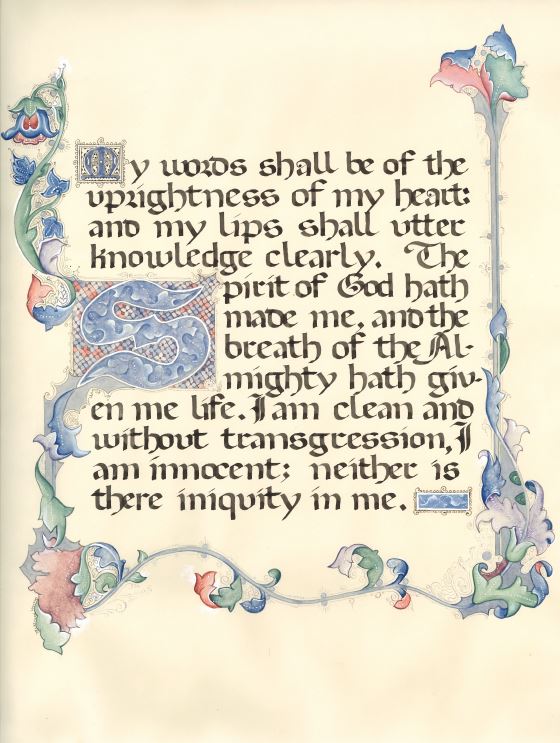 My words shall be of the
uprightness of my heart:
and my lips shall utter
knowledge clearly. The
Spirit of God hath
made me, and the
breath of the Al-
mighty hath giv-
en me life. I am clean and
without transgression, I
am innocent; neither is
there iniquity in me.